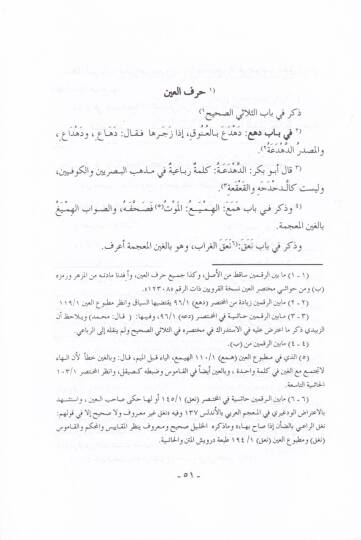 (١ حرف العين
ذكر في باب الثلاثي الصحيح١)
(٢ في باب دهع: دَهْدَعَ بالعُنُوقِ، إذا زَجَرها فقال: دَهَاعِ، ودَهْدَاعِ،
والمصدرُ الدَّهْدَعَةُ٢).
(٣ قال أبو بكر: الدَّهْدَعَةُ: كلمةٌ رباعيةٌ في مذهب البصريين والكوفيين،
وليست كالدحْدَحَةِ والقَعْقَعَةِ٣).
(٤ وذكر في باب هَمَعَ: الهِمْيَعُ: المَوْتُ(٥) فَصَحَّفَهُ، والصواب الهِمْيَغُ
بالغين المعجمة.
وذكر في باب نَعَقَ:(٦ نَعَقَ الغراب، وهو بالغين المعجمة أعرف.
(١ – ١) ما بين الرقمين ساقط من الأصل، وكذا جميع حرف العين، وأفدنا مادته من المزهر ورمزه
(ب) ومن حواشي مختصر العين نسخة القرويين ذات الرقم (١٢٣٠٨).
(٢ – ٢) مابين الرقمين زيادة من المختصر (دهع) ٩٦/١ يقتضيها السياق وانظر مطبوع العين ١١٩/١
(٣ – ٣) مابين الرقمين حاشية في المختصر (دعه) ٩٦/١، وفيها: ( قال: محمد) ويلاحظ أن
الزبيدي ذكر ما اعترض عليه في الاستدراك في مختصره في الثلاثي الصحيح ولم ينقله إلى الرباعي.
(٤ – ٤) مابين الرقمين من (ب).
(٥) الذي في مطبوع العين (همع) ١١٠/١ الهيمع، الياء قبل الميم، قال: وبالغين خطأ لأن الهاء
لاتجتمع مع الغين في كلمة واحدة، وبالعين أيضاً في القاموس وضبطه كصيقل، وانظر المختصر ١٠٣/١
الحاشية التاسعة.
(٦ – ٦) مابين الرقمين حاشية في المختصر (نعق) ١٤٥/١ أو لها حكى صاحب العين، واستشهد
بالاعتراض الودغيري في المعجم العربي بالأندلس ١٣٧ وفيه «نعق غير معروف ولا صحيح إلا في قولهم:
نعق الراعي بالضأن إذا صاح بها» وماذكره الخليل صحيح ومعروف ينظر المقاييس والمحكم والقاموس
(نغق) ومطبوع العين (نعق) ١٩٤/١ طبعة درويش المتن والحاشية.
- ٥١ -